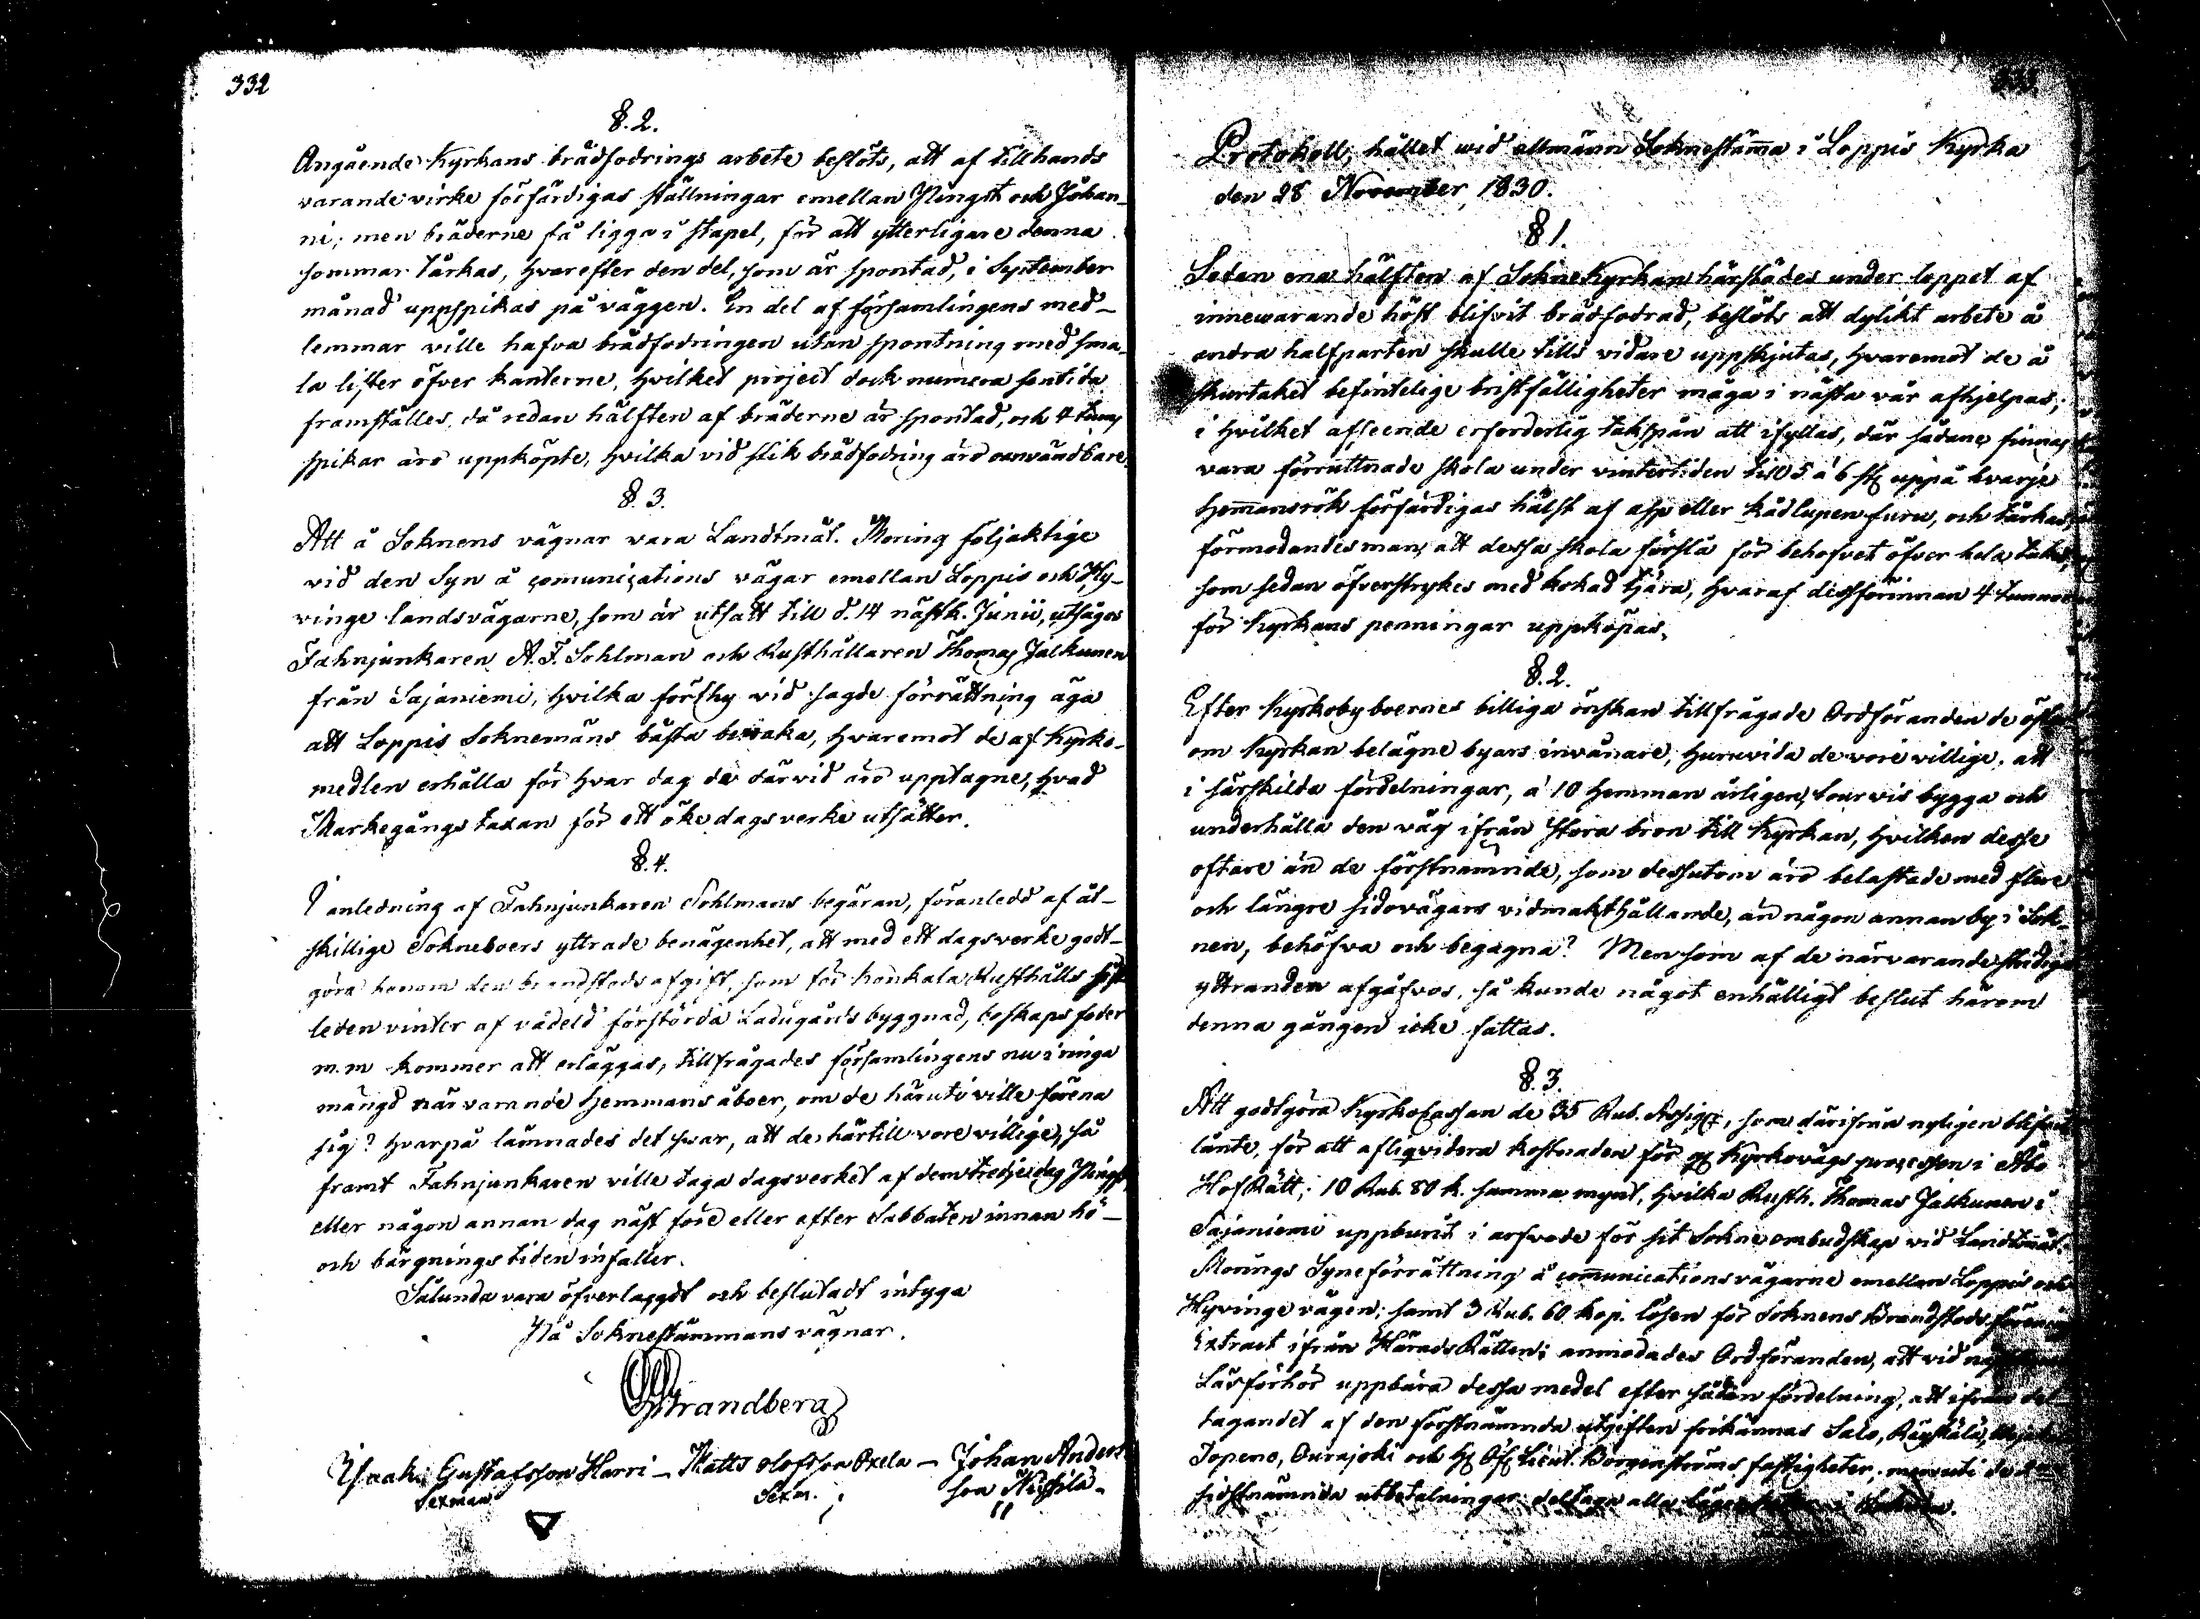 332
§. 2.
Angående Kyrkans brädfodrings arbete beslöts, att af tillhands
varande virke förfärdigas ställningar emellan Pingst och Johan-
ni; men bräderne få ligga i stapel, för att ytterligare denna
sommar tårkas, hvarefter den del, som är spontad, i September
månad uppspikas på väggen. En del af församlingens med-
lemmar ville hafva brädfodringen utan spontning med sma-
la lister öfver kanterne, hvilket project dock numera sent ida
framställes, då redan hälften af bräderne är spontad, och 4 tums
spikar äro uppköpte, hvilka vid slik brädfodring äro oanvändbare.
§. 3.
Att å Soknens vägnar vara Landtmät. Moring följaktige
vid den Syn å communications vägar emellan Loppis och Hy-
vinge landsvägarne, som är utsatt till d. 14 nästk. Junii, utsågos
Fahnjunkaren A. F. Sohlman och Rusthållaren Thomas Jalkunen
från Sajaniemi, hvilka förthy vid sagde förrättning äga
att Loppis Soknemäns bästa bevaka, hvaremot de af Kyrko-
medlen erhålla för hvar dag de därvid äro upptagne, hvad
Markegångs taxan för ett öke dagsverke utsätter.
§. 4.
I anledning af Fahnjunkaren Sohlmans begäran, föranledd af åt-
skillige Sokneboers yttrade benägenhet, att med ett dagsverke godt-
göra honom den brandstods afgift, som för honkala Rusthålls sist-
leden vinter af vådeld förstörda Ladugårds byggnad, boskaps foder
m.m kommer att erläggas, tillfrågades församlingens nu i ringa
mängd närvarande Hemmans åboer, om de häruti ville förena
sig? hvarpå lämnades det svar, att de härtill vore villige, så
framt Fahnjunkaren ville taga dagsverket af dem tredjedag Pingst
eller någon annan dag näst före eller efter Sabbaten innan hö-
och bärgnings tiden infaller.
Sålunda vara öfverlaggdt och beslutadt intyga
På Soknestämmans vägnar.
Strandberg
Isaak Gustafsson Harri - Matts Olofsson Oxela - Johan Anders
Sexman Sexm. son
Protokoll, hållet wid allmänn Soknestämma i Loppis Kyrka
den 28 November, 1830.
§ 1.
Sedan ena hälften af SokneKyrkan härstädes under loppet af
innewarande höst blifvit brädfodrad, beslöts att dylikt arbete å
andra halfparten skulle tills vidare uppskjutas, hvaremot de å
skurtaket befintelige bristfälligheter måga i nästa vår afhjelpas;
i hvilket afseende erforderlig takspån att ifyllas, där sådane finnas
vara förruttnade skola under vintertiden till 5 à 6 st uppå hvarje
Hemansrök förfärdigas hälst af asp eller kådlupen furu, och tårkas,
förmodandes man, att dessa skola förslå för behofvet öfver hela taket,
som sedan öfverstrykes med kokad tjära, hvaraf dessförinnan 4 tunnor
för Kyrkans penningar uppköpas.
§. 2.
Efter Kyrkobyboernes billiga önskan tillfrågade Ordföranden de
om Kyrkan belägne byars invånare, huruvida de vore villige, att
i särskilda fördelningar, à 10 hemman årligen, tourvis bygga och
underhålla den väg ifrån Stora bron till Kyrkan, hvilken desse
oftare än de förstnämnde, som dessutom äro belastade med flere
och längre sidovägars vidmakthållande, än någon annan by i Sok-
nen, behöfva och begagna? Men som af de närvarande stridiga
yttranden afgåfvos, så kunde något enhälligt beslut härom
denna gången icke fattas.
§. 3.
Att godtgöra Kyrkocassan de 35 Rub. Assign, som därifrån nyligen blifvit
lånte, för att afliqvidera kostnaden för Kyrkovägs processen i Åbo
HofRätt; 10 Rub. 80 k. samma mynt, hvilka Rusth. Thomas Jalkunen i
Sajaniemi uppburit i arfvode för sit Sokne ombudskap vid Landtmät.
Morings Syneförrättning å communicationsvägarne emellan Loppis och
Hyvinge vägen; samt 3 Rub. 60 kop. lösen för Soknens Brandstods
Extract ifrån HäradsRätten; anmodades Ordföranden, att vid
Läsförhör uppbära dessa medel efter sådan fördelning, att ifrån del-
tagandet af den förstnämnda utgiften frikännas Salo, Räyskälä,
Topeno, Ourajoki och H Öf Lieut. Borgenströms fastigheter, men uti de
sidstnämnda utbetalningar deltaga alla